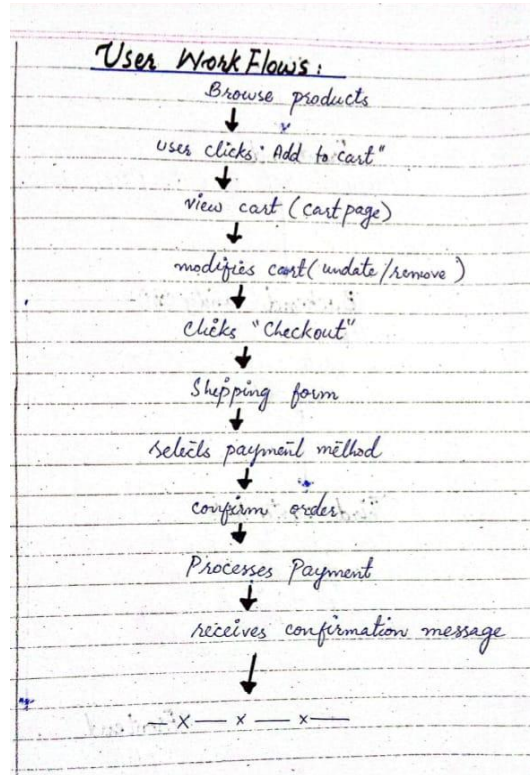 User WorkFlows:
Browse products
user clicks "Add to cart"
view cart (cart page)
modifies cart (undate/remove)
clicks "Checkout"
Shipping form
selects payment method
confirm order
Processes Payment
receives confirmation message
—x— x — x—